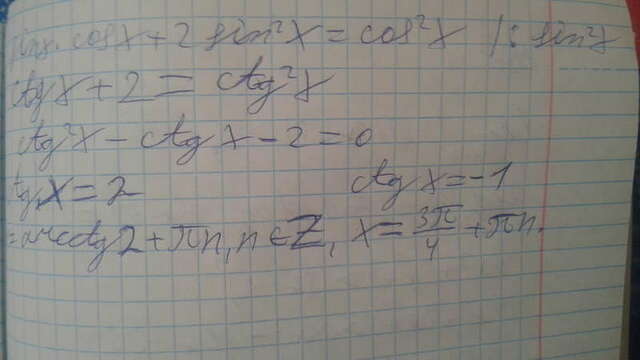 sinx·cosx + 2 sin²x = cos²x /: sin²x
ctgx + 2 = ctg²x
ctg²x - ctgx - 2 = 0
tgx = 2 ctgx = -1
= arcctg2 + πn, n∈Z, x = 3π/4 + πn.